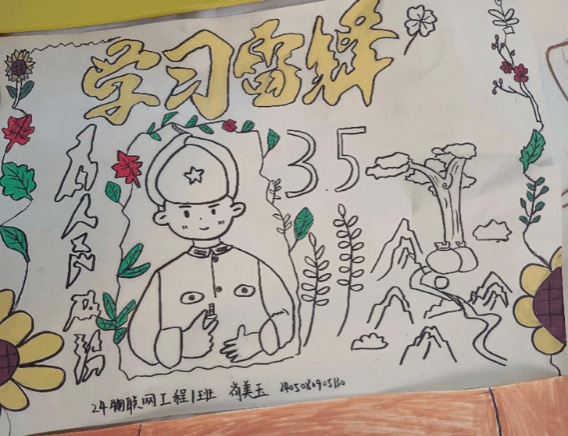 学习雷锋
为人民服务
35
24物联网工程1班 美玉